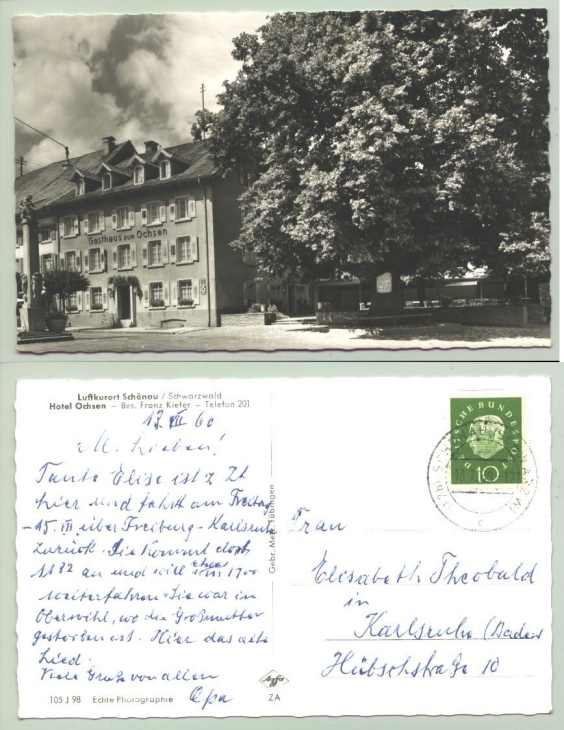 Gasthaus zum Ochsen
Luftkurort Schönau / Schwarzwald
Hotel Ochsen – Bes. Franz Kiefer – Telefon 201
60
M. Lieben!
Tante Elise ist z Zt
hier und fährt am Freitag
15. über Freiburg - Karlsruhe
zurück. Sie kommt dort
an und will
weiterfahren. Sie war in
Oberwihl, wo die Großmutter
gestorben ist. Hier das alte
Lied.
Viele Grüße von allen
Opa
105 J 98 Echte Photographie
Gebr. Metz, Tübingen
Agfa
ZA
DEUTSCHE BUNDESPOST
10
Frau
Elisabeth Theobald
in
Karlsruhe (Baden
Hübschstraße 10